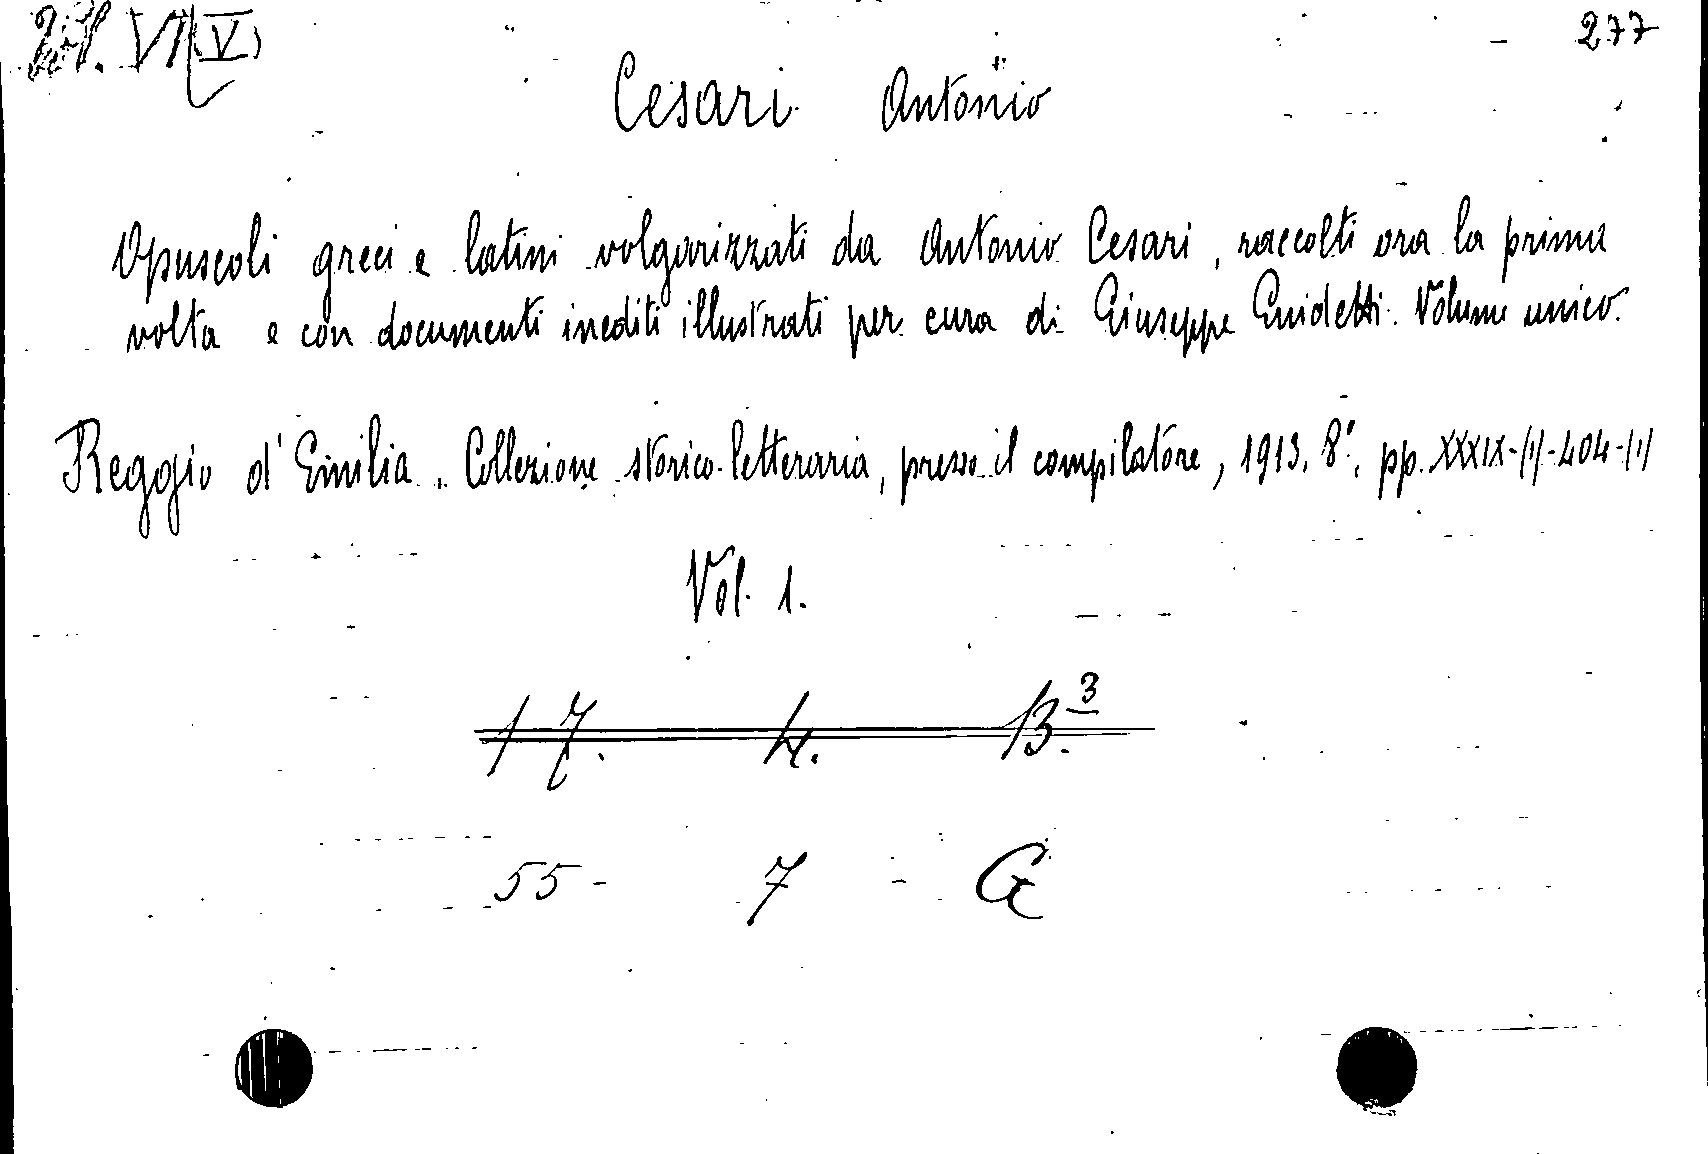 VI (V)
277
Cesari Antonio
Opuscoli greci e latini volgarizzati da Antonio Cesari, raccolti ora la prima
volta e con documenti inediti illustrati per cura di Giuseppe Guidetti. Volume unico.
Reggio d'Emilia. Collezione storico-letteraria, presso il compilatore, 1913. 8°, pp. XXXIX-(1)-404-(1)
Vol. 1.
17. 4. B.3
55 - 7 - G